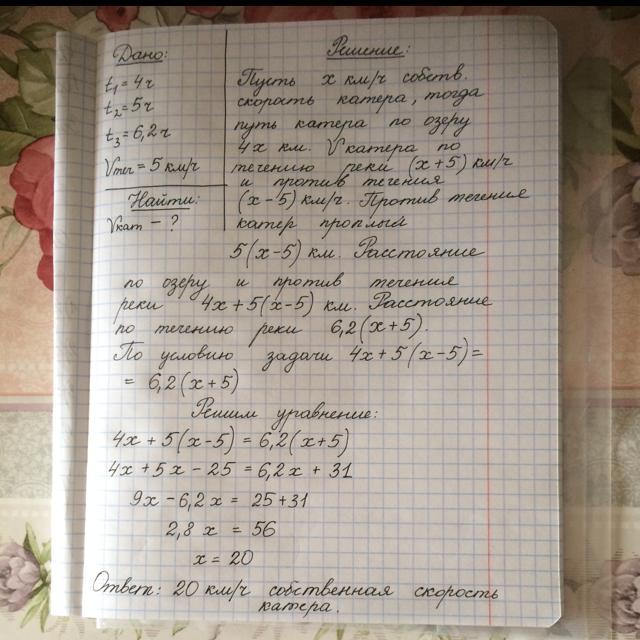 Дано:
t₁ = 4 ч
t₂ = 5 ч
t₃ = 6,2 ч
Vтеч = 5 км/ч
Найти:
Vкат – ?
Решение:
Пусть x км/ч собств.
скорость катера, тогда
путь катера по озеру
4x км. V катера по
течению реки (x+5) км/ч
и против течения
(x-5) км/ч. Против течения
катер проплыл
5(x-5) км. Расстояние
по озеру и против течения
реки 4x+5(x-5) км. Расстояние
по течению реки 6,2(x+5).
По условию задачи 4x+5(x-5)=
= 6,2(x+5)
Решим уравнение:
4x+5(x-5) = 6,2(x+5)
4x+5x-25 = 6,2x+31
9x-6,2x = 25+31
2,8 x = 56
x = 20
Ответ: 20 км/ч собственная скорость
катера.